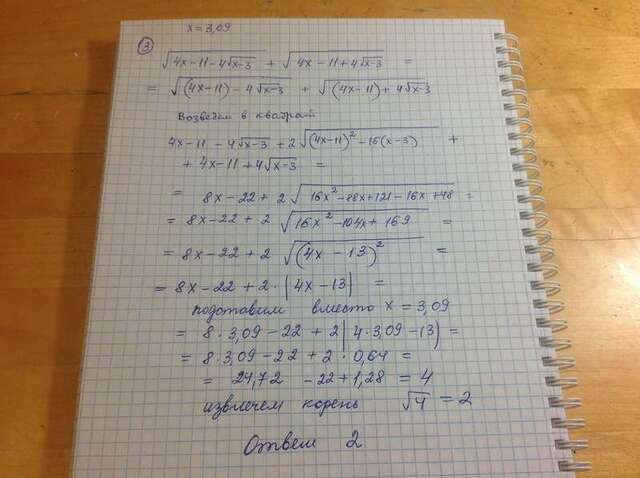 x = 3,09
③ √(4x-11-4√(x-3)) + √(4x-11+4√(x-3)) =
= √((4x-11)-4√(x-3)) + √((4x-11)+4√(x-3))
Возведем в квадрат
4x-11-4√(x-3)+2√((4x-11)²-16(x-3)) +
+ 4x-11+4√(x-3) =
= 8x-22+2√(16x²-88x+121-16x+48) =
= 8x-22+2√(16x²-104x+169) =
= 8x-22+2√((4x-13)²) =
= 8x-22+2·|4x-13| =
подставим вместо x = 3,09
= 8·3,09-22+2|4·3,09-13| =
= 8·3,09-22+2·0,64 =
= 24,72 -22+1,28 = 4
извлечем корень √4 = 2
Ответ 2